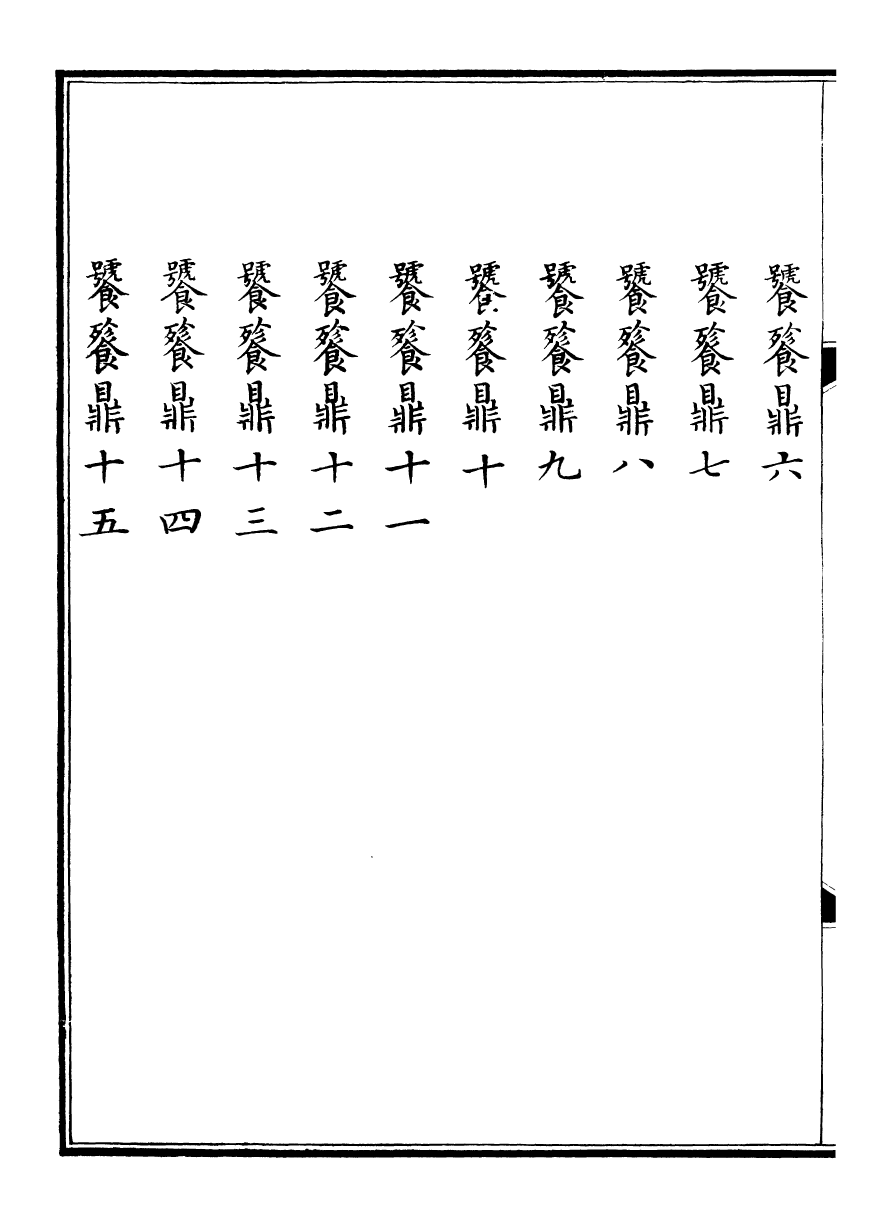 饕餮鼎六
饕餮鼎七
饕餮鼎八
饕餮鼎九
饕餮鼎十
饕餮鼎十一
饕餮鼎十二
饕餮鼎十三
饕餮鼎十四
饕餮鼎十五